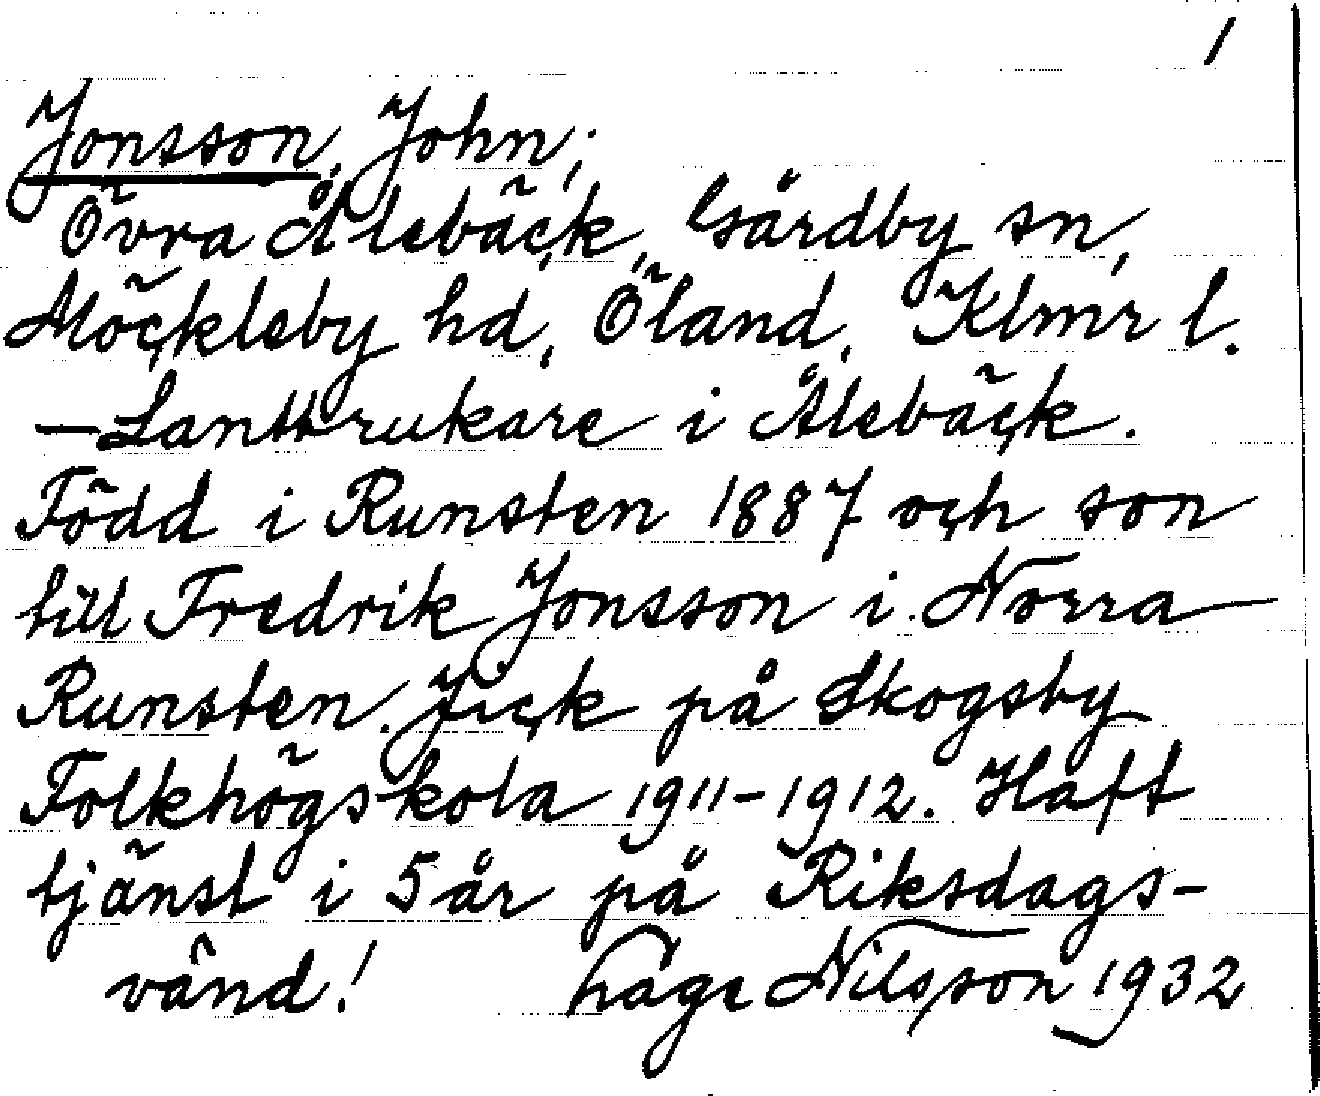 1
Jonsson, John;
Övra Ålebäck, Gårdby sn,
Möckleby hd, Öland, Klmr l.
—Lantbrukare i Ålebäck.
Född i Runsten 1887 och son
till Fredrik Jonsson i Norra
Runsten. Gick på Skogsby
Folkhögskola 1911-1912. Haft
tjänst i 5 år på Riksdags-
vänd! Nilsson 1932